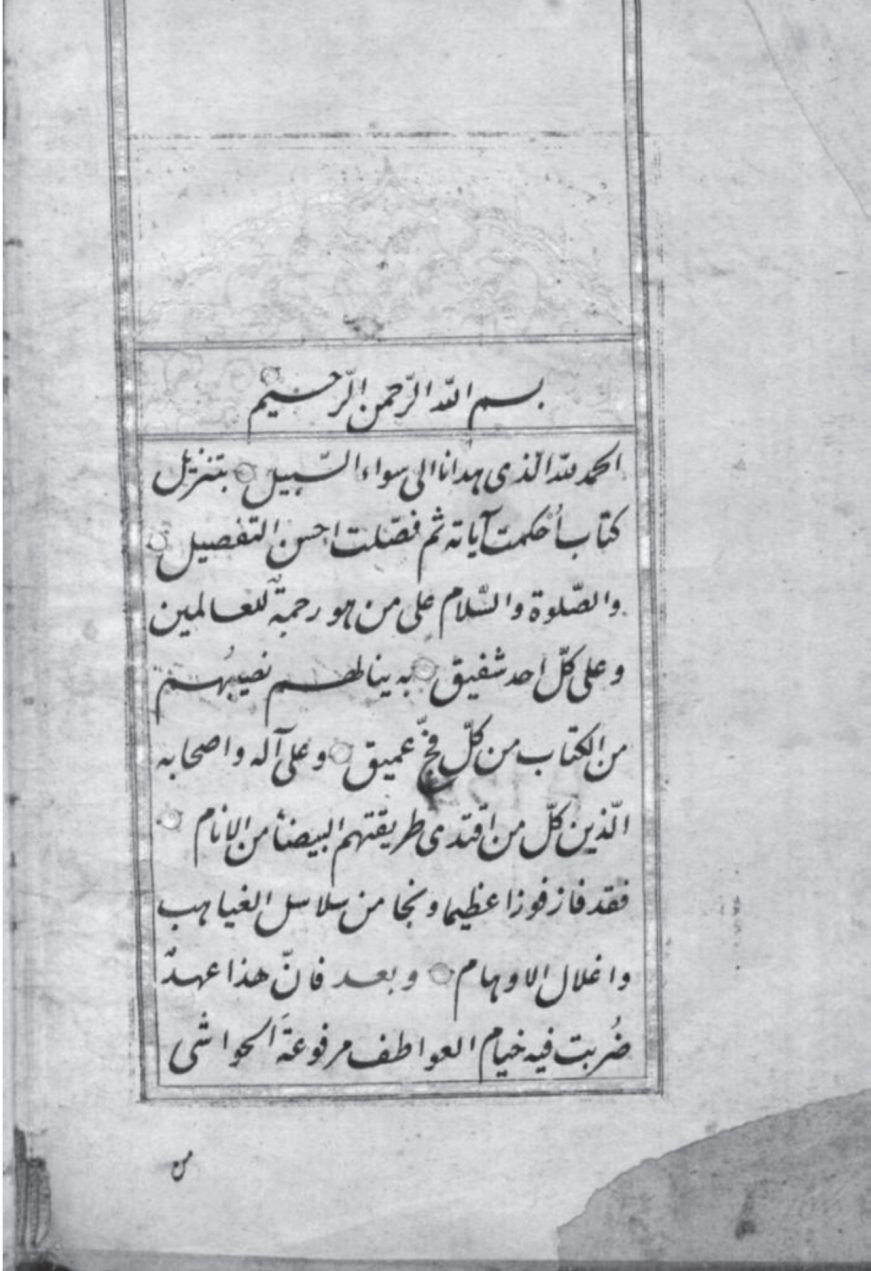 بسم الله الرّحمن الرّحيم
الحمد لله الّذى هدانا الى سواء السّبيل بتنزيل
كتاب أُحكمت آياته ثم فصّلت احسن التفصيل
والصّلوة والسّلام على من هو رحمةٌ للعالمين
وعلى كلّ احد شفيق به ينالهم نصيبُهم
من الكتاب من كلّ فجّ عميق وعلى آله واصحابه
الّذين كلّ من اقتدى طريقتهم البيضا من الانام
فقد فاز فوزا عظيما ونجا من سلاسل الغياهب
واغلال الاوهام وبعد فانّ هذا عهدٌ
ضُربت فيه خيام العواطف مرفوعةَ الحواشى